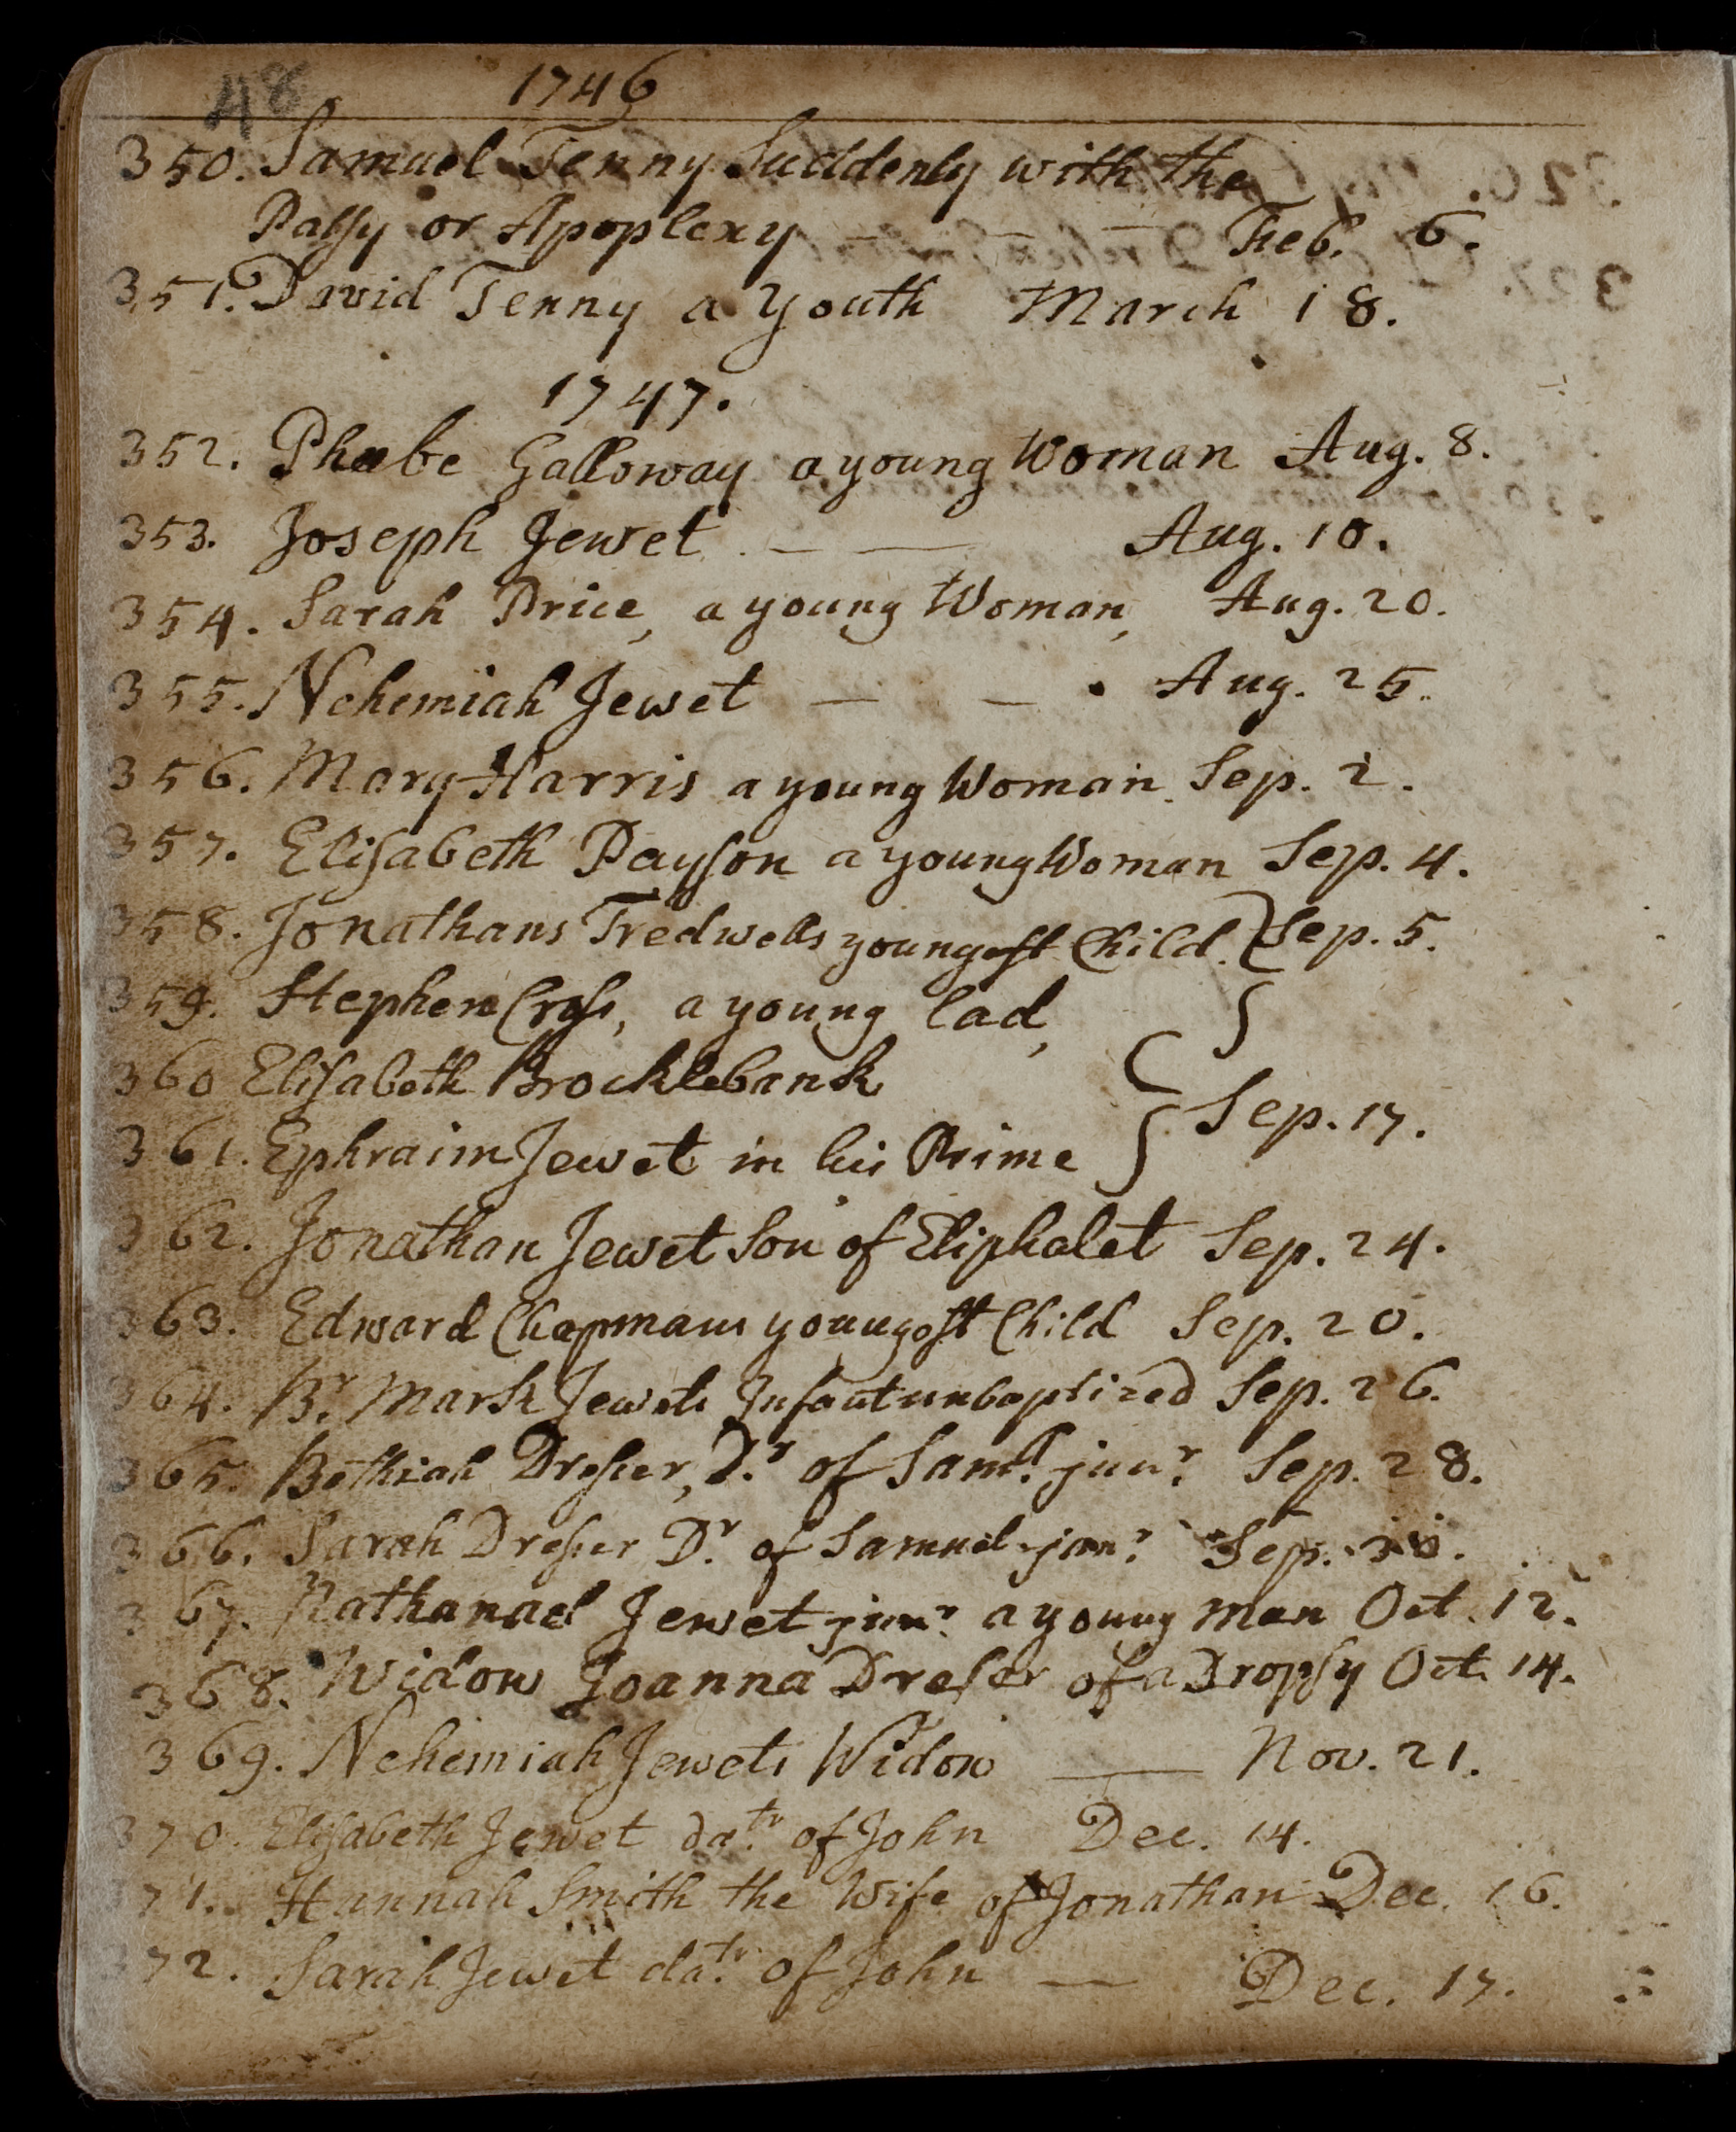 48
1746
350. Samuel Tenny Suddenly with the
Palsy or Apoplexy — — — Feb. 6.
351. David Tenny a Youth March 18.
1747.
352. Phœbe Galloway a young Woman Aug. 8.
353. Joseph Jewet — — Aug. 10.
354. Sarah Price, a young Woman, Aug. 20.
355. Nehemiah Jewet — — Aug. 25.
356. Mary Harris a young Woman. Sep. 2.
357. Elisabeth Payson a young Woman Sep. 4.
358. Jonathans Tredwells youngest Child. Sep. 5.
359. Stephen Cross, a young lad,
360 Elisabeth Brocklebank
361. Ephraim Jewet in his Prime } Sep. 17.
362. Jonathan Jewet Son of Eliphalet Sep. 24.
363. Edward Chapmans youngest Child Sep. 20.
364. Br. Mark Jewets Infant unbaptized Sep. 26.
365. Bethiah Dresser, Dr. of Saml. junr. Sep. 28.
366. Sarah Dresser Dr. of Samuel junr. Sep.
367. Nathanael Jewet junr. a young man Oct. 12.
368. Widow Joanna Dreser of a Dropsy Oct. 14.
369. Nehemiah Jewets Widow — Nov. 21.
370. Elisabeth Jewet datr. of John Dec. 14.
71. Hannah Smith the Wife of Jonathan Dec. 16.
372. Sarah Jewet datr. of John — Dec. 17.